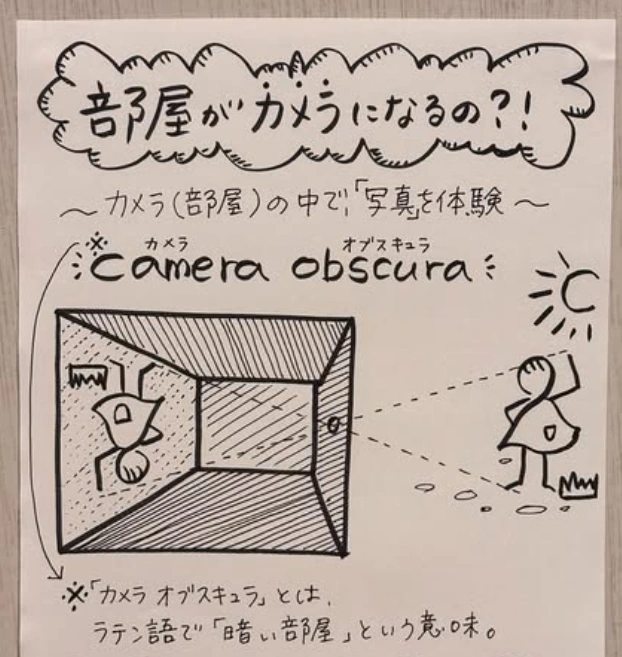 部屋がカメラになるの?!
〜カメラ(部屋)の中で、「写真」を体験〜
※ カメラ オブスキュラ
camera obscura
※「カメラ オブスキュラ」とは、
ラテン語で「暗い部屋」という意味。